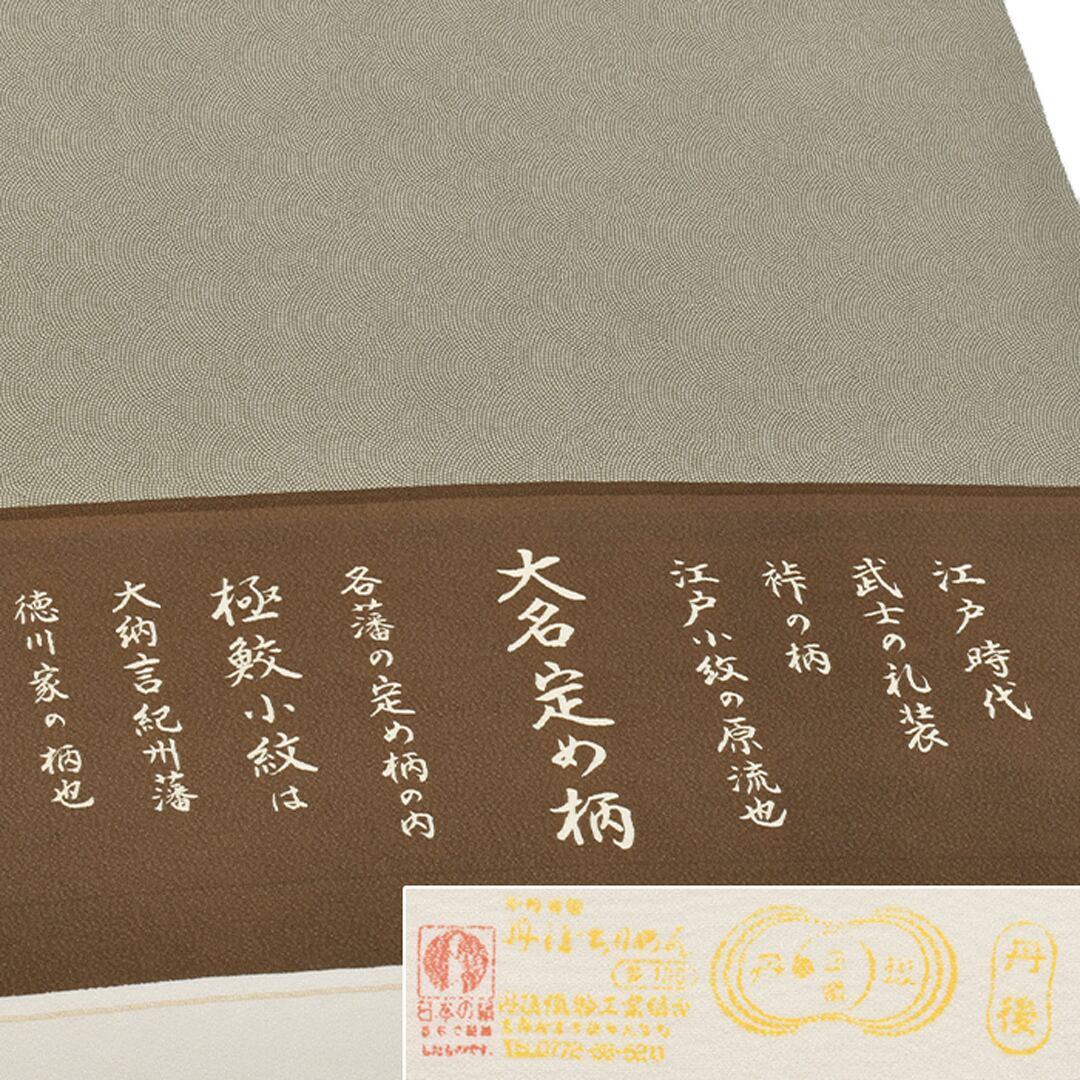 江戸時代
武士の礼装
裃の柄
江戸小紋の原流也
大名定め柄
各藩の定め柄の内
極鮫小紋は
大納言紀州藩
徳川家の柄也
日本の絹
丹後ちりめん
絹100
丹後織物工業組合
TEL0772-68-5211
丹後